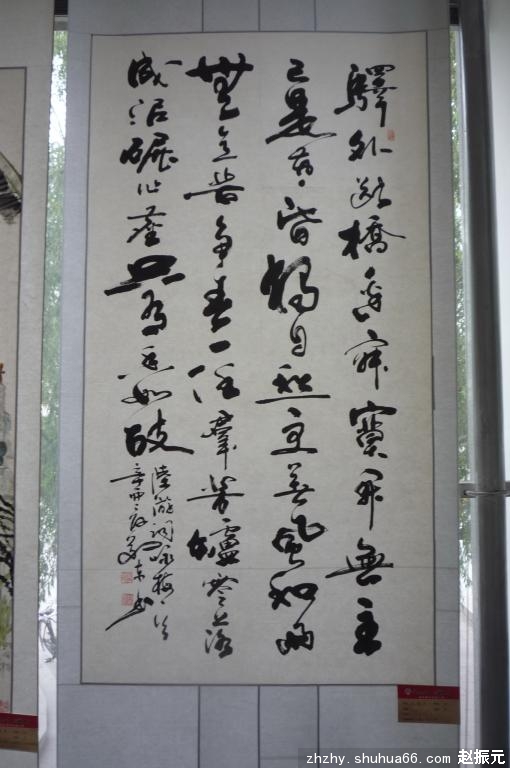 驛外斷橋邊寂寞開無主
已是黃昏獨自愁更著風和雨
無意苦争春一任羣芳妒零落
成泥碾作塵只有香如故
陸游詞咏梅一首
书
zhzhy.shuhua66.com 赵振元